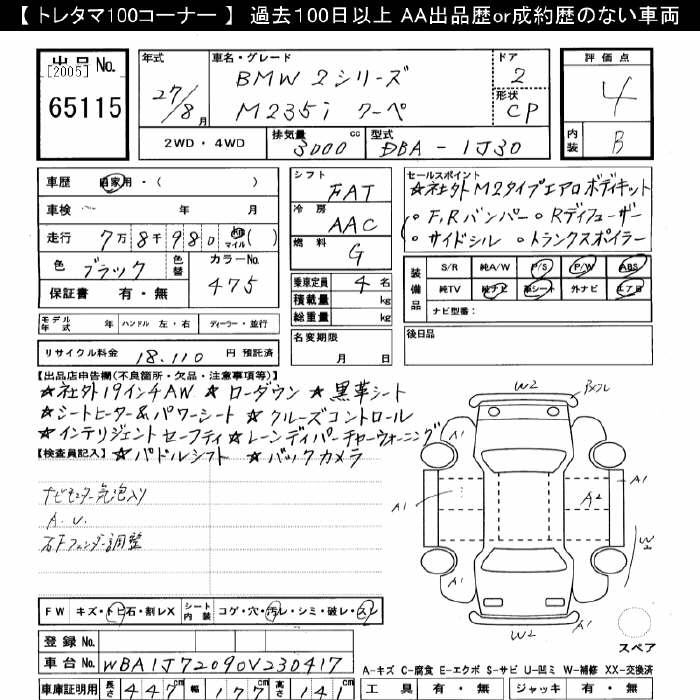 【 トレタマ100コーナー 】 過去100日以上 AA出品歴or成約歴のない車両
出品 No.
[2005]
65115
年式
27/8月
車名・グレード
BMW 2シリーズ
M235i クーペ
ドア
2
形状
CP
評価点
4
内装
B
2WD・4WD
排気量
3000 cc
型式
DBA-1J30
車歴 自家用・( )
車検 年 月
走行 7万8千980 km マイル ( )
色 ブラック 色替
カラーNo. 475
保証書 有・無
シフト
FAT
冷房
AAC
燃料
G
乗車定員 4名
積載量 kg
総重量 kg
名変期限
月 日
セールスポイント
☆社外M2タイプエアロボディキット
○F,Rバンパー○Rディフューザー
○サイドシル ○トランクスポイラー
装備品
S/R 純A/W P/S P/W ABS
純TV 純ナビ 革シート 外ナビ エアB
ナビ型番:
後日品
モデル年式 年 ハンドル 左・右 ディーラー・並行
リサイクル料金 18,110 円 預託済
【出品店申告欄(不良箇所・欠品・注意事項等)】
☆社外19インチAW ☆ローダウン ☆黒革シート
☆シートヒーター&パワーシート ☆クルーズコントロール
☆インテリジェントセーフティ☆レーンディパーチャーウォーニング
【検査員記入】 ☆パドルシフト ☆バックカメラ
ナビモニター気泡入り
A.U.
右Fフェンダー調整
W2
A1
A1
A1
A2
W2
A1
W2
A1
スペア
FW キズ・トビ石・割レX シート内装 コゲ・穴・汚レ・シミ・破レ・スレ
登録 No.
車台 No. WBA1J72090V230417
A-キズ C-腐食 E-エクボ S-サビ U-凹ミ W-補修 XX-交換済
車庫証明用 長さ 447cm 幅 177cm 高さ 141cm
工具 有・無 ジャッキ 有・無